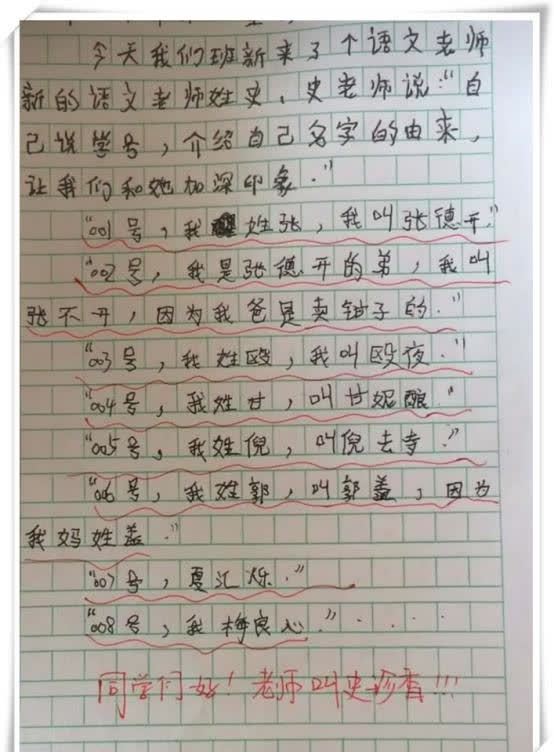 今天我们班新来了个语文老师
新的语文老师姓史，史老师说："自
己说学号，介绍自己名字的由来，
让我们和她加深印象．"
"001号，我姓张，我叫张德开．"
"002号，我是张德开的弟，我叫
张不开，因为我爸是卖钳子的．"
"003号，我姓殴，我叫殴夜．"
"004号，我姓甘，叫甘妮酿．"
"005号，我姓倪，叫倪去寺．"
"006号，我姓郭，叫郭盖，因为
我妈姓盖．"
"007号，夏汇烁．"
"008号，我梅良心．"．．．．
同学们好！老师叫史诊香!!!